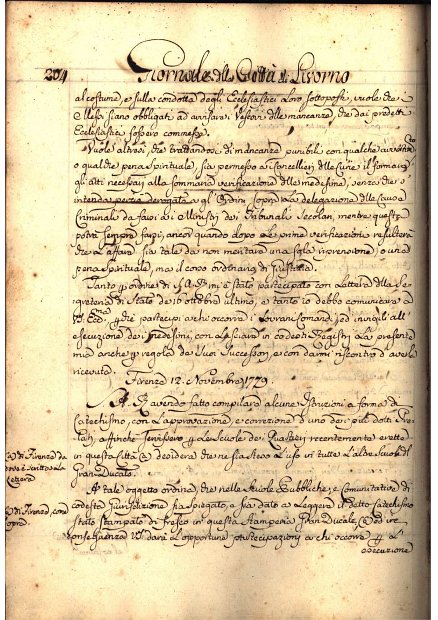 204 Giornale della Città di Livorno
al costume, e sulla condotta degli Ecclesiastici loro sottoposti, vuole che
essi siano obbligati ad avvisare i Vescovi delle mancanze, che dai predetti
Ecclesiastici fossero commesse.
Vuole altresì che trattandosi di mancanze punibili con qualche
o qualche pena spirituale, sia permesso ai Cancellieri delle Curie il formare
gli atti necessarj alla sommaria verificazione delle medesime, senza che s
intenda perciò derogato a gl'Ordini sopra la delegazione delle Cause
Criminali da farsi ai Ministri dei Tribunali Secolari, mentre questa
potrà sempre farsi, ancor quando dopo le prime verificazioni resulterà
che l'affare sia tale da non meritare una sola riprensione, o una
pena spirituale, ma il corso ordinario di Giustizia.
Tanto per ordine di S.A.R. mi è stato partecipato con Lettera della Se
greteria di Stato de 16 ottobre ultimo, e tanto io debbo comunicare a
VS. perché partecipi a chi occorre i Sovrani Comandi, ed invigili all'
esecuzione dei medesimi, con lasciare in codesti Registri la presente
mia anche per regola de Suoi Successori, e con darmi riscontro d'averla
ricevuta.
Firenze 12. Novembre 1779.
S.A.R. avendo fatto compilare alcune Istruzioni a forma di
Catechismo, con l'approvazione, e correzione d'uno dei più dotti Pre
lati, affinché servissero per le Scuole dei Quartieri recentemente erette
in questa Città desidera che ne sia steso l'uso in tutte l'altre Scuole del
Gran Ducato.
di Firenze da
scritta la
Lettera
A tale oggetto ordina, che nelle Scuole Pubbliche, e Comunitative di
codesta Giurisdizione sia spiegato, e sia dato a leggere il detto Catechismo
stato stampato di fresco in questa Stamperia Gran Ducale, ed in
conseguenza VS. darà l'opportune partecipazioni a chi occorre per l'
esecuzione
di Firenze, come
sopra